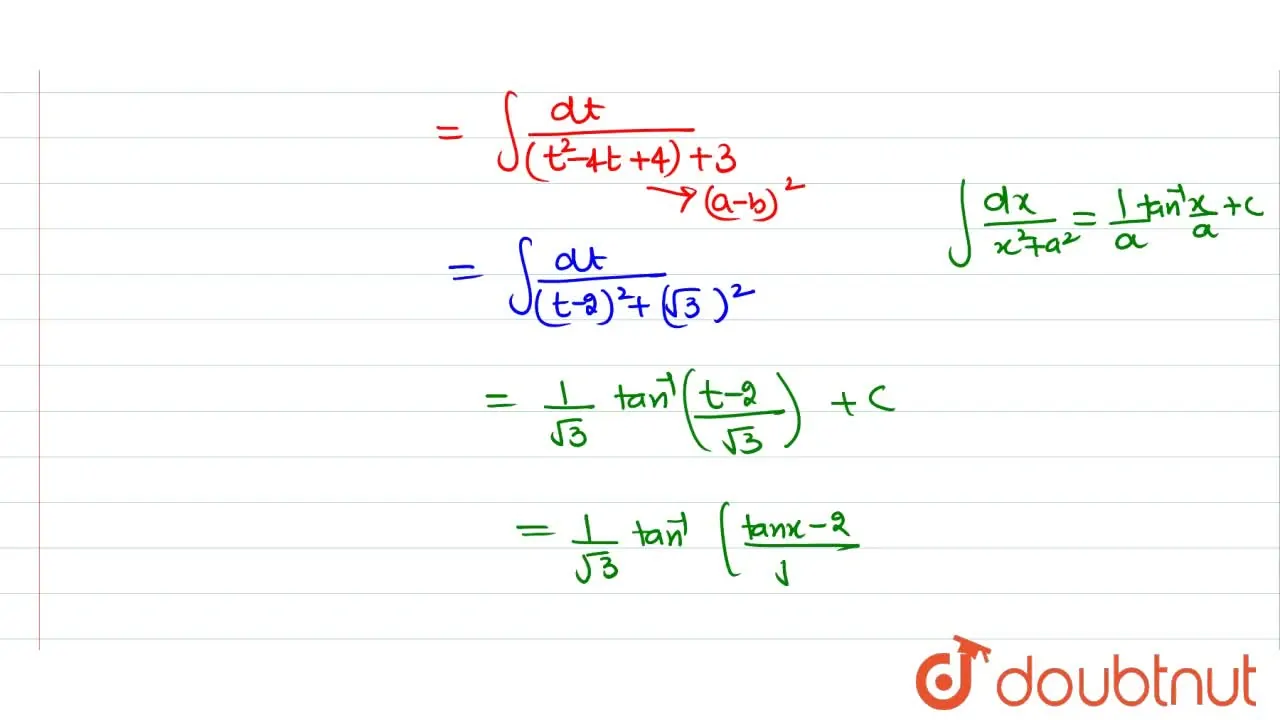 = ∫ dt / (t² - 4t + 4) + 3
→ (a-b)²
∫ dx / x² + a² = 1/a tan⁻¹ x/a + c
= ∫ dt / (t-2)² + (√3)²
= 1/√3 tan⁻¹ (t-2 / √3) + c
= 1/√3 tan⁻¹ (tanx - 2 / √
doubtnut